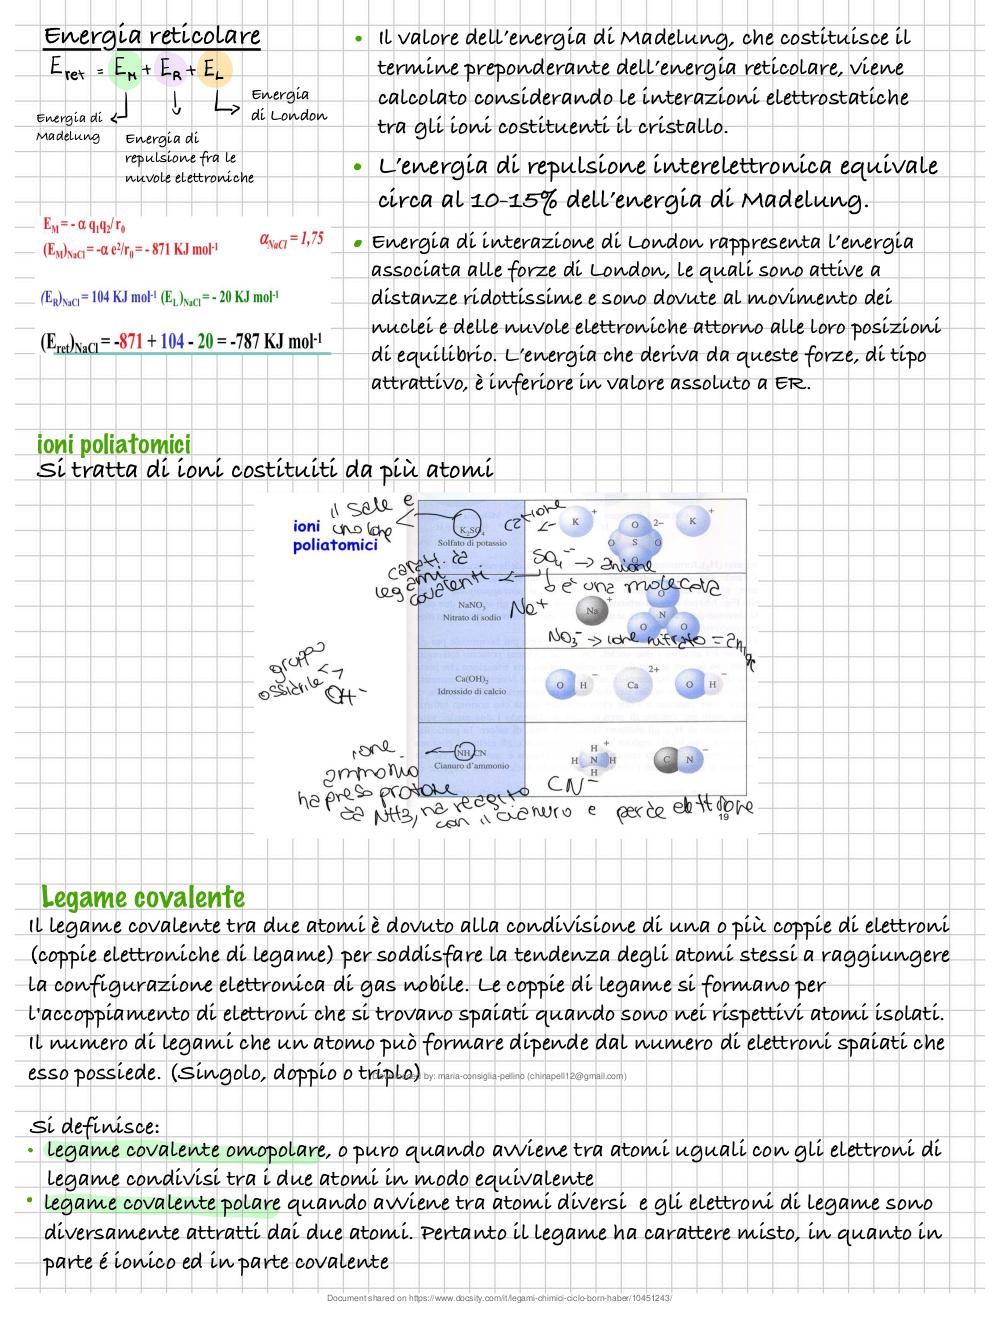 Energia reticolare
E ret = EM + ER + EL
Energia di
Madelung
Energia di
repulsione fra le
nuvole elettroniche
Energia
di London
EM = - α q1q2/ r0
(EM)NaCl = -α e²/r0 = - 871 KJ mol-1
αNaCl = 1,75
(ER)NaCl = 104 KJ mol-1 (EL)NaCl = - 20 KJ mol-1
(Eret)NaCl = -871 + 104 - 20 = -787 KJ mol-1
• Il valore dell'energia di Madelung, che costituisce il
termine preponderante dell'energia reticolare, viene
calcolato considerando le interazioni elettrostatiche
tra gli ioni costituenti il cristallo.
• L'energia di repulsione interelettronica equivale
circa al 10-15% dell'energia di Madelung.
• Energia di interazione di London rappresenta l'energia
associata alle forze di London, le quali sono attive a
distanze ridottissime e sono dovute al movimento dei
nuclei e delle nuvole elettroniche attorno alle loro posizioni
di equilibrio. L'energia che deriva da queste forze, di tipo
attrattivo, è inferiore in valore assoluto a ER.
ioni poliatomici
Si tratta di ioni costituiti da più atomi
ioni
poliatomici
il sale è
K2SO4
Solfato di potassio
catione
K +
O 2-
O S O
O
K +
caratt. da
legami
covalenti
SO4-- → anione
è una molecola
NaNO3
Nitrato di sodio
Na+
Na +
O
N
O O
NO3- → ione nitrato = anione
gruppo
ossidrile
OH-
Ca(OH)2
Idrossido di calcio
O H -
Ca 2+
O H -
ione
ammonio
ha preso protone
da NH3, ha reagito
con il cianuro e perde elettrone
NH4CN
Cianuro d'ammonio
H +
H N H
H
C N -
CN-
19
Legame covalente
Il legame covalente tra due atomi è dovuto alla condivisione di una o più coppie di elettroni
(coppie elettroniche di legame) per soddisfare la tendenza degli atomi stessi a raggiungere
la configurazione elettronica di gas nobile. Le coppie di legame si formano per
l'accoppiamento di elettroni che si trovano spaiati quando sono nei rispettivi atomi isolati.
Il numero di legami che un atomo può formare dipende dal numero di elettroni spaiati che
esso possiede. (Singolo, doppio o triplo)
by: maria-consiglia-pellino (chinapell12@gmail.com)
Si definisce:
• legame covalente omopolare, o puro quando avviene tra atomi uguali con gli elettroni di
legame condivisi tra i due atomi in modo equivalente
• legame covalente polare quando avviene tra atomi diversi e gli elettroni di legame sono
diversamente attratti dai due atomi. Pertanto il legame ha carattere misto, in quanto in
parte é ionico ed in parte covalente
Document shared on https://www.docsity.com/it/legami-chimici-ciclo-born-haber/10451243/